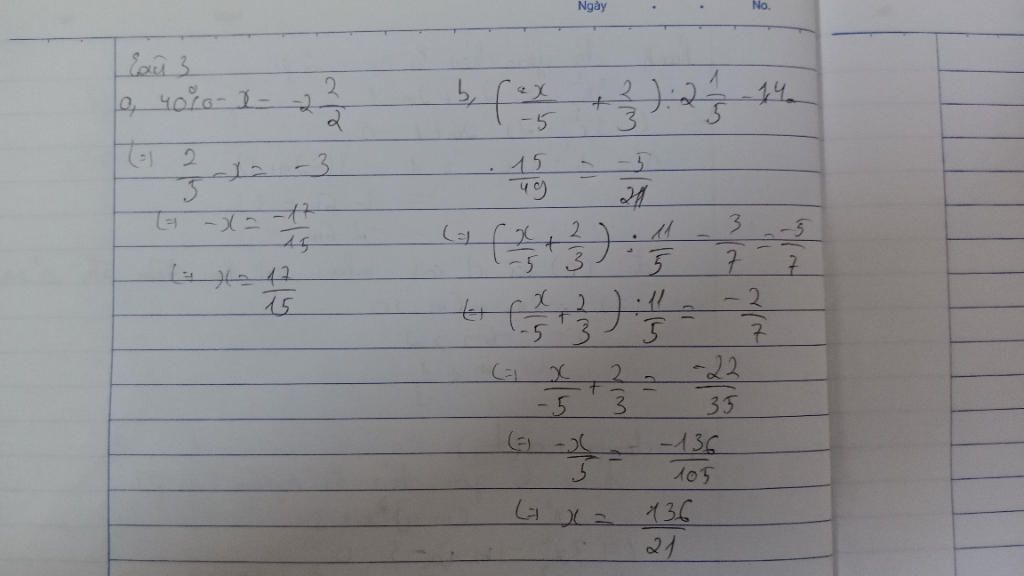 Ngày . . No.
Bài 3
a, 40% - x = -2 2/2
(=) 2/5 - x = -3
(=) -x = -17/15
(=) x = 17/15
b, (x/-5 + 2/3) : 2 1/5 - 1,4.
. 15/49 = -5/21
(=) (x/-5 + 2/3) : 11/5 - 3/7 = -5/7
(=) (x/-5 + 2/3) : 11/5 = -2/7
(=) x/-5 + 2/3 = -22/35
(=) -x/5 = -136/105
(=) x = 136/21